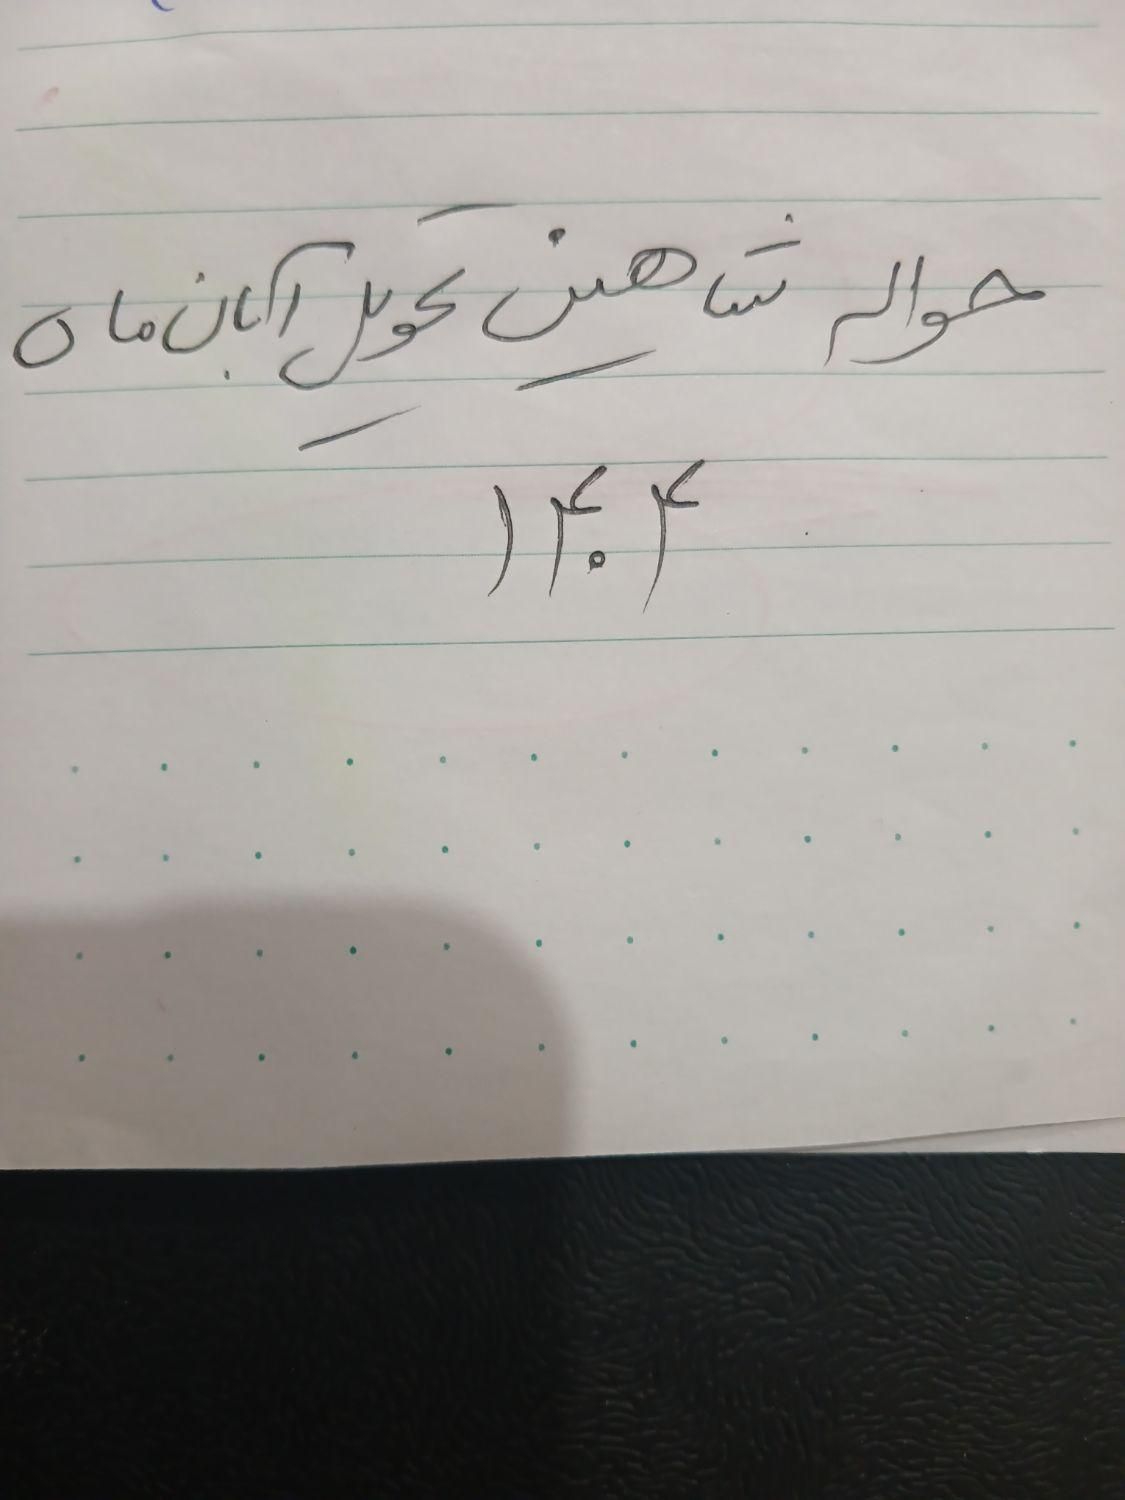 حواله شاهین تحویل آبان ماه
۱۴۰۴